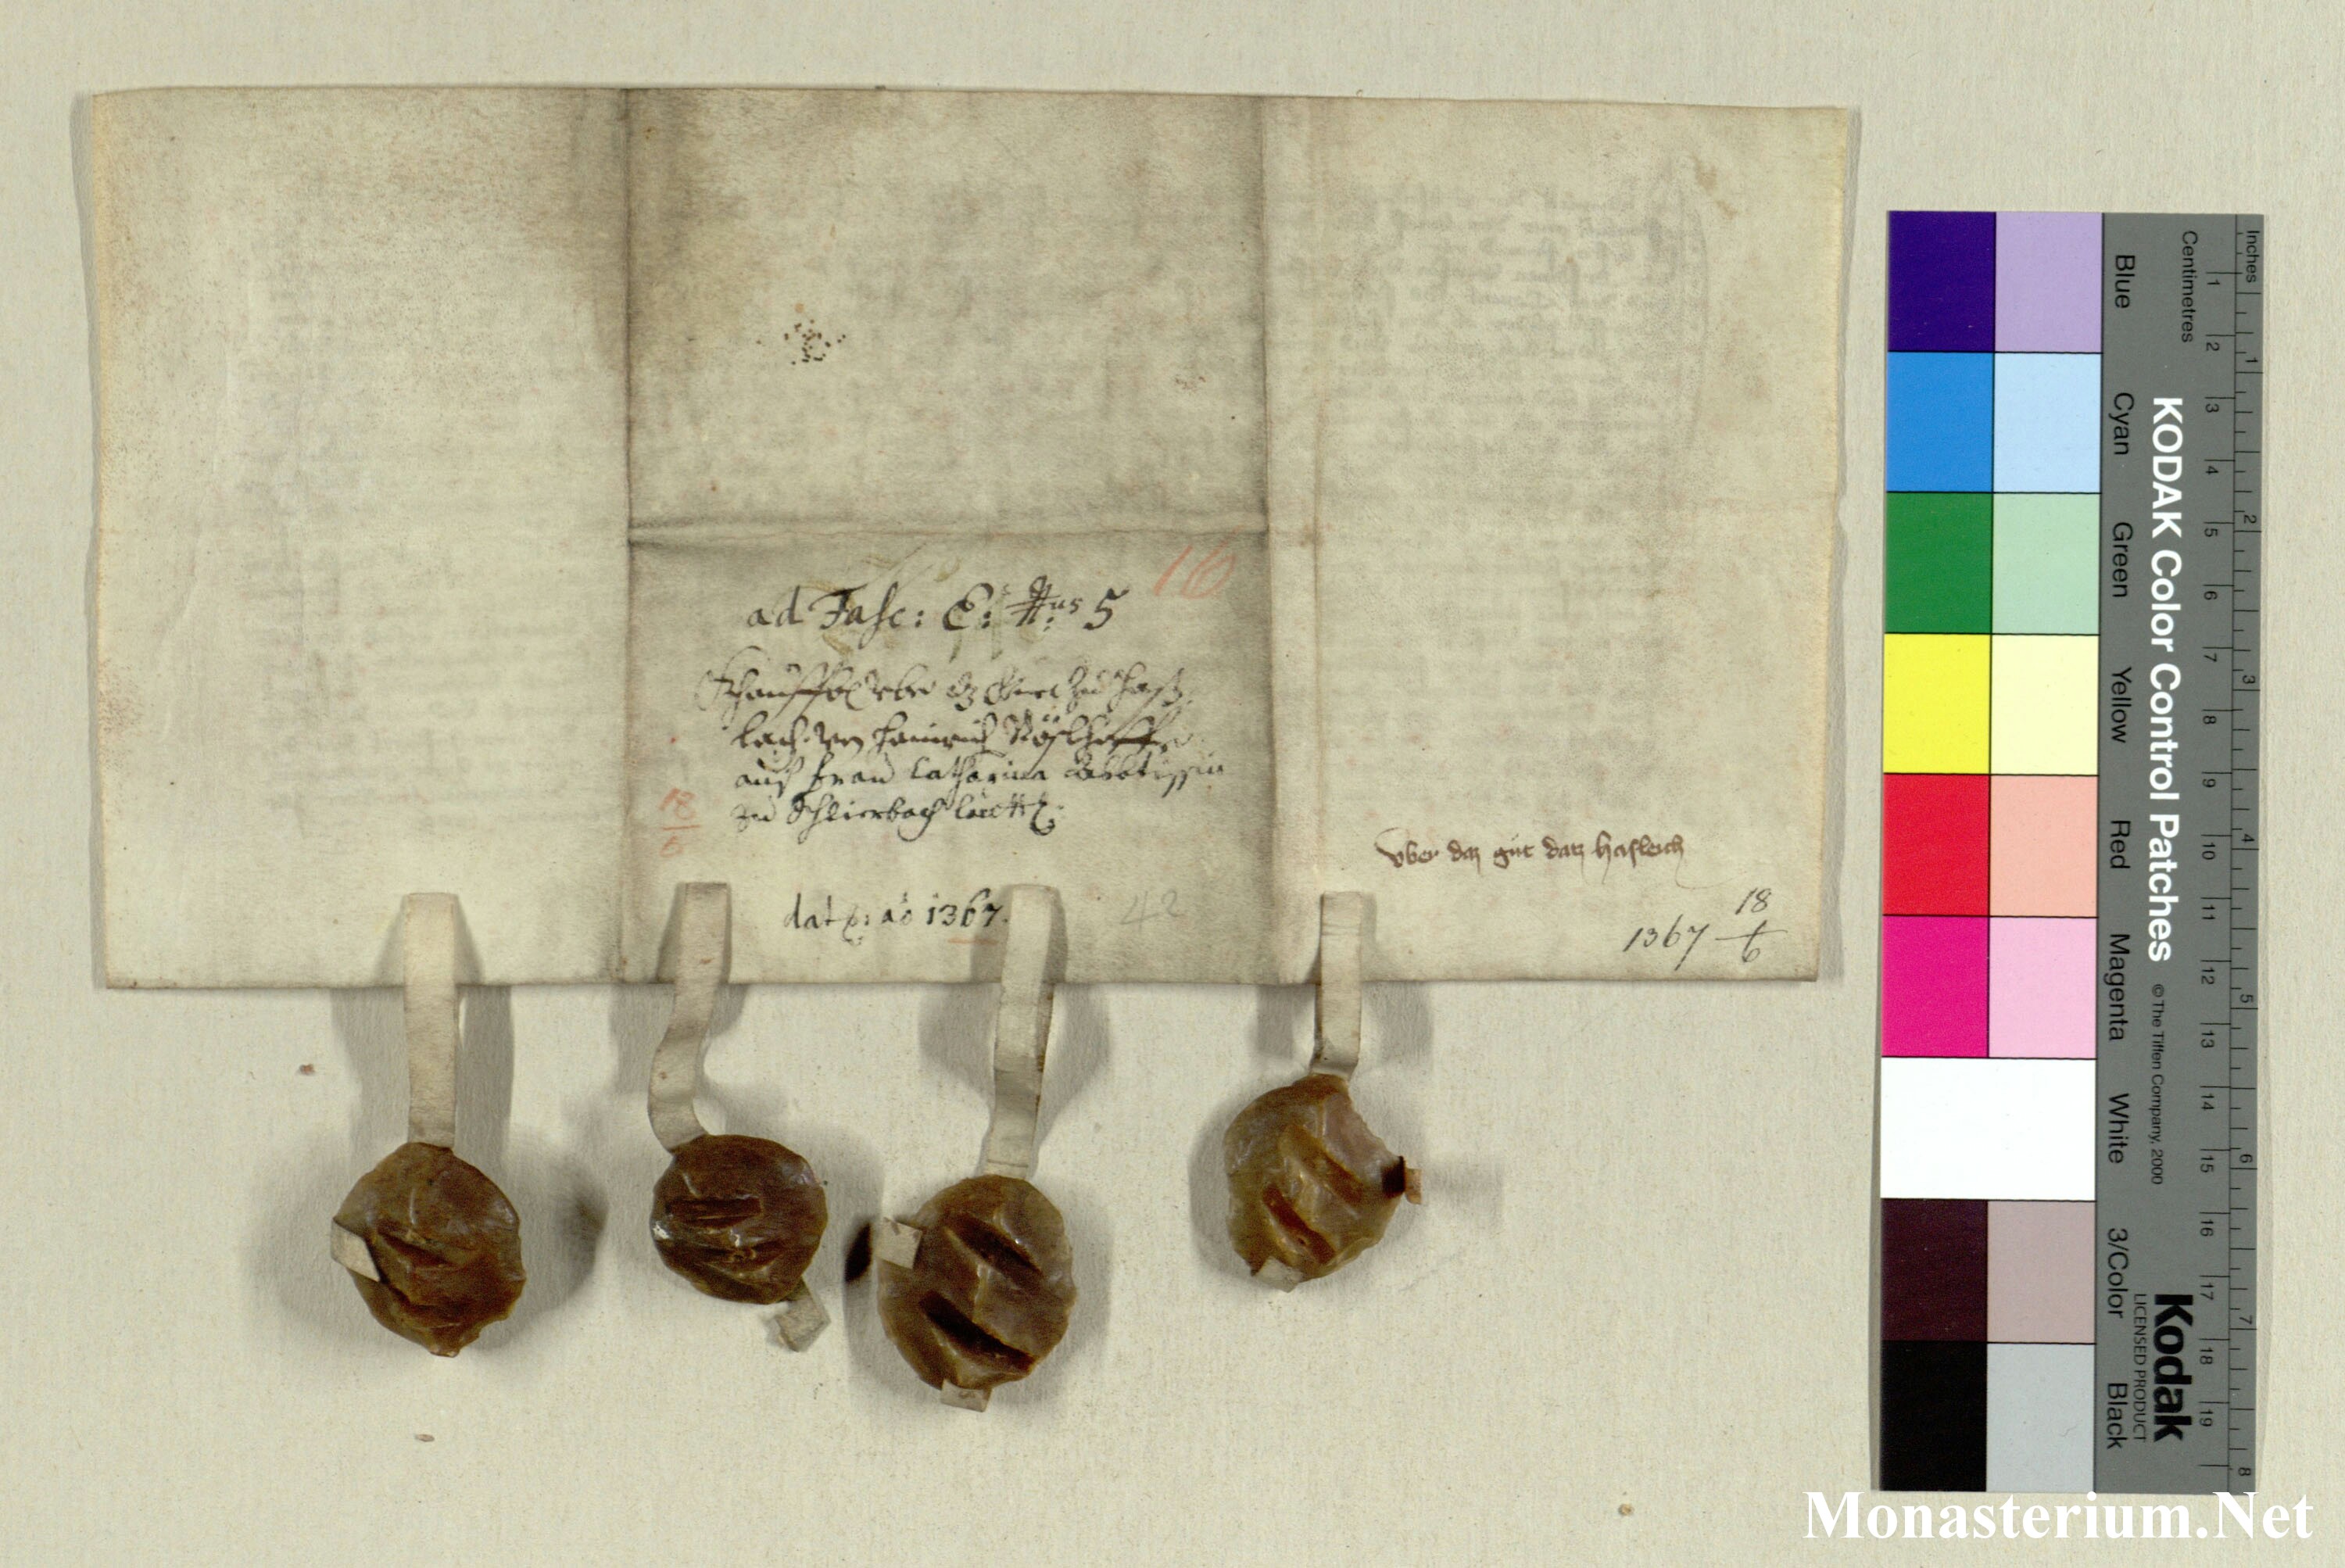 10
ad Fasc: E: #us 5
Khauffbrief
lach von Heinrich
auf Frau Catharina Abbtissin
zu Schlierbach lautt:
18
6
dat: aô 1367.
42
vber daz gut datz Hasleich
1367 18/6
Inches
Centimetres
KODAK Color Control Patches © The Tiffen Company, 2000
Kodak
LICENSED PRODUCT
Blue
Cyan
Green
Yellow
Red
Magenta
White
3/Color
Black
1 2 3 4 5 6 7 8 9 10 11 12 13 14 15 16 17 18 19
1 2 3 4 5 6 7 8
Monasterium.Net